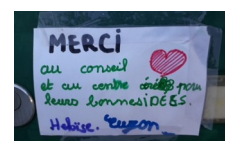 MERCI
au conseil
et au centre pour
leurs bonnes iDÉES.
Héloïse. Suzon